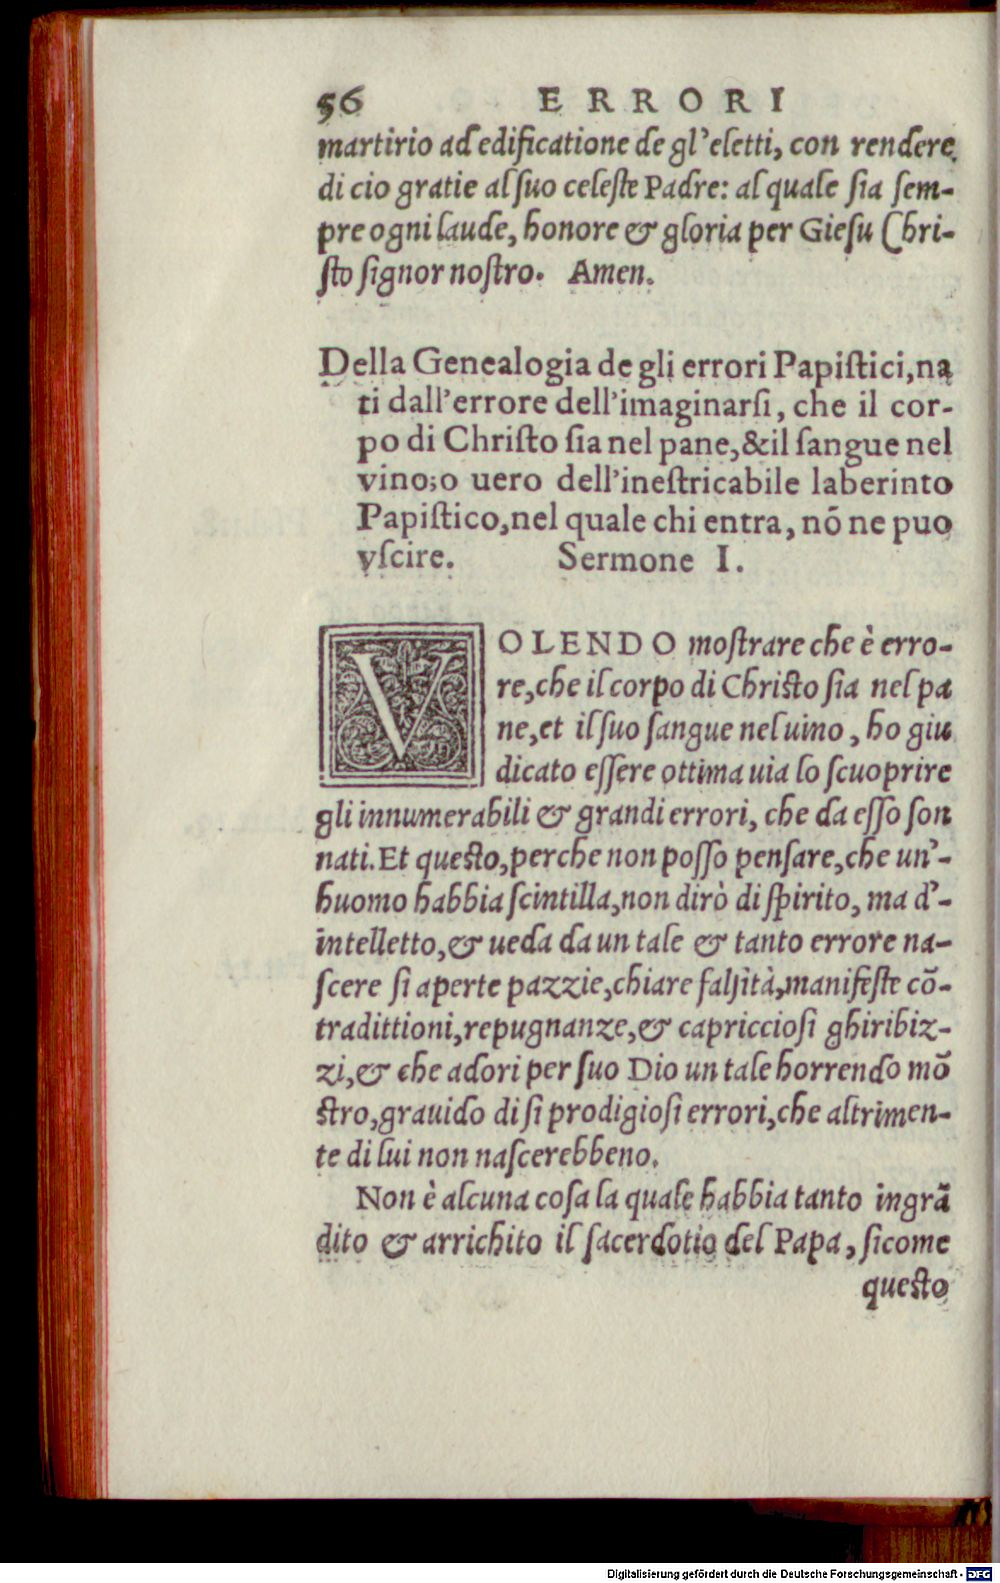 56 ERRORI
martirio ad edificatione de gl'eletti, con rendere
di cio gratie al ſuo celeſte Padre: al quale ſia ſem-
pre ogni laude, honore & gloria per Gieſu Chri-
ſto ſignor noſtro. Amen.
Della Genealogia de gli errori Papiſtici, na
ti dall'errore dell'imaginarſi, che il cor-
po di Chriſto ſia nel pane, &il ſangue nel
vino; o uero dell'ineſtricabile laberinto
Papiſtico, nel quale chi entra, nõ ne puo
vſcire. Sermone I.
VOLENDO moſtrare che è erro-
re, che il corpo di Chriſto ſia nel pa
ne, et il ſuo ſangue nel uino, ho giu
dicato eſſere ottima uia lo ſcuoprire
gli innumerabili & grandi errori, che da eſſo ſon
nati. Et queſto, perche non poſſo penſare, che un'-
huomo habbia ſcintilla, non dirò di ſpirito, ma d'-
intelletto, & ueda da un tale & tanto errore na-
ſcere ſi aperte pazzie, chiare falſità, manifeſte cõ-
tradittioni, repugnanze, & capriccioſi ghiribiz-
zi, & che adori per ſuo Dio un tale horrendo mõ
ſtro, grauido di ſi prodigioſi errori, che altrimen-
te di lui non naſcerebbeno.
Non è alcuna coſa la quale habbia tanto ingrã
dito & arrichito il ſacerdotio del Papa, ſicome
queſto
Digitalisierung gefördert durch die Deutsche Forschungsgemeinschaft - DFG